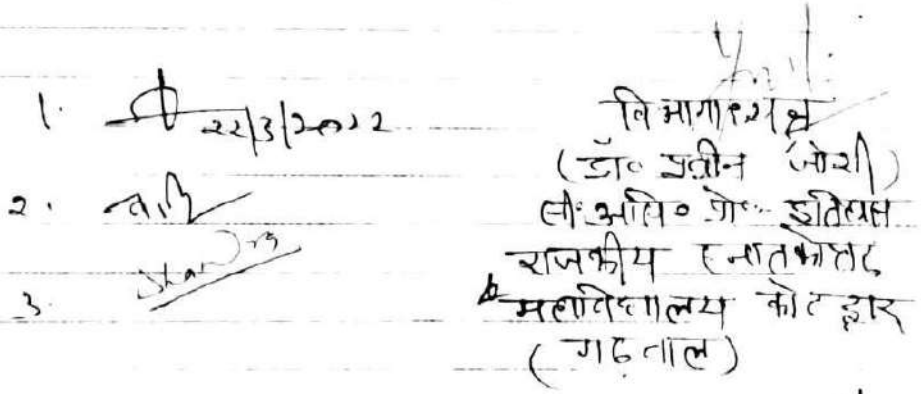 1. 22/3/2022
विभागाध्यक्ष
(डॉ० प्रवीन जोशी)
2.
इतिहास
राजकीय स्नातकोत्तर
3.
महाविद्यालय कोटद्वार
(गढ़वाल)